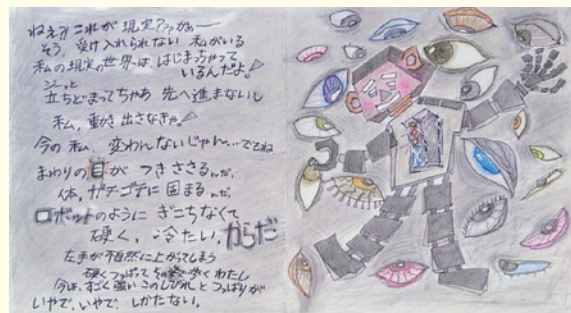 ねえ?! これが現実?っかぁー
そう、受け入れられない 私がいる
私の現実の世界は、はじまっちゃって
いるんだよ。
ジーッと
立ちどまってちゃあ 先へ進まないし
私、動き出さなきゃ。
今の私、変わんないじゃん…でもね
まわりの目が つきささるんだ。
体、ガチゴチに固まるんだ。
ロボットのように ぎこちなくて
硬く、冷たい、からだ
左手が不自然に上がってしまう
硬くつっぱって その姿で歩くわたし
今は、すごく強いこのしびれと つっぱりが
いやで、いやで、しかたない。